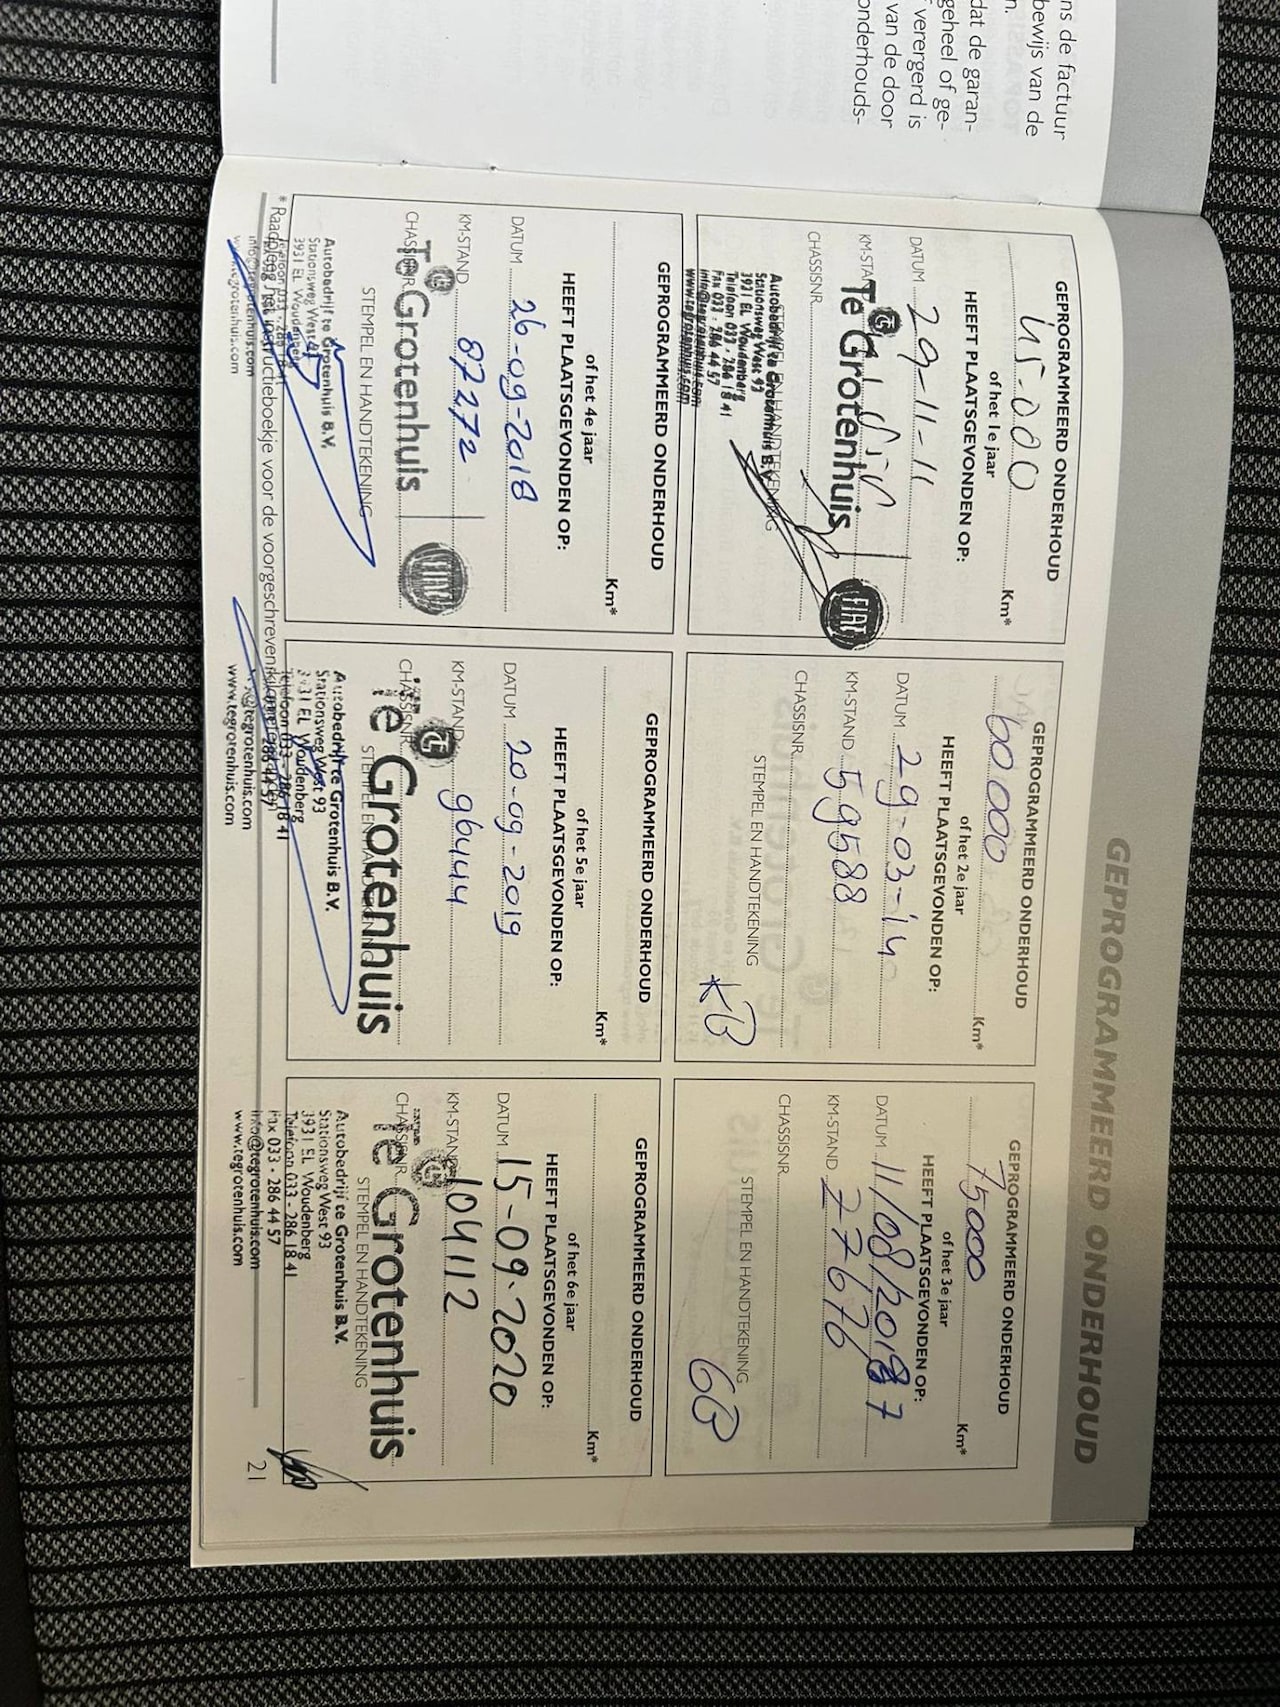 ns de factuur
bewijs van de
n.
dat de garan-
geheel of ge-
verergerd is
van de door
onderhouds-
GEPROGRAMMEERD ONDERHOUD
GEPROGRAMMEERD ONDERHOUD
45.000 Km*
of het 1e jaar
HEEFT PLAATSGEVONDEN OP:
DATUM 29-11-11
KM-STAND
CHASSISNR.
Te Grotenhuis
FIAT
STEMPEL EN HANDTEKENING
Autobedrijf te Grotenhuis B.V.
Stationsweg West 93
3931 EL Woudenberg
Telefoon 033 - 286 18 41
Fax 033 - 286 44 57
info@tegrotenhuis.com
www.tegrotenhuis.com
GEPROGRAMMEERD ONDERHOUD
60000 Km*
of het 2e jaar
HEEFT PLAATSGEVONDEN OP:
DATUM 29-03-14
KM-STAND 59588
CHASSISNR.
STEMPEL EN HANDTEKENING
KB
GEPROGRAMMEERD ONDERHOUD
75000 Km*
of het 3e jaar
HEEFT PLAATSGEVONDEN OP:
DATUM 11/08/2017
KM-STAND 77676
CHASSISNR.
STEMPEL EN HANDTEKENING
GB
GEPROGRAMMEERD ONDERHOUD
Km*
of het 4e jaar
HEEFT PLAATSGEVONDEN OP:
DATUM 26-09-2018
KM-STAND 87272
CHASSISNR.
Te Grotenhuis
FIAT
STEMPEL EN HANDTEKENING
Autobedrijf te Grotenhuis B.V.
Stationsweg West 93
3931 EL Woudenberg
Telefoon 033 - 286 18 41
info@tegrotenhuis.com
www.tegrotenhuis.com
GEPROGRAMMEERD ONDERHOUD
Km*
of het 5e jaar
HEEFT PLAATSGEVONDEN OP:
DATUM 20-09-2019
KM-STAND 96444
CHASSISNR.
Te Grotenhuis
STEMPEL EN HANDTEKENING
Autobedrijf te Grotenhuis B.V.
Stationsweg West 93
3931 EL Woudenberg
Telefoon 033 - 286 18 41
286 44 57
info@tegrotenhuis.com
www.tegrotenhuis.com
GEPROGRAMMEERD ONDERHOUD
Km*
of het 6e jaar
HEEFT PLAATSGEVONDEN OP:
DATUM 15-09-2020
KM-STAND 104112
CHASSISNR.
Te Grotenhuis
STEMPEL EN HANDTEKENING
Autobedrijf te Grotenhuis B.V.
Stationsweg West 93
3931 EL Woudenberg
Telefoon 033 - 286 18 41
Fax 033 - 286 44 57
info@tegrotenhuis.com
www.tegrotenhuis.com
* Raadpleeg het instructieboekje voor de voorgeschreven
21